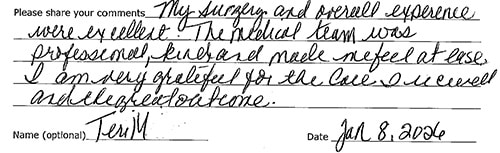 Please share your comments My surgery and overall experence
were excellent. The medical team was
professional, kind, and made me feel at ease.
I am very grateful for the care I received
and the great outcome.
Name (optional) Teri M Date Jan 8, 2026